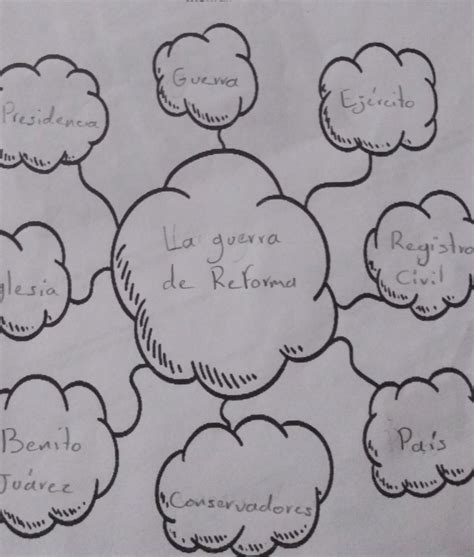 Guerra
Presidencia
Ejército
La guerra
de Reforma
Registro
Civil
glesia
Benito
Juárez
País
Conservadores